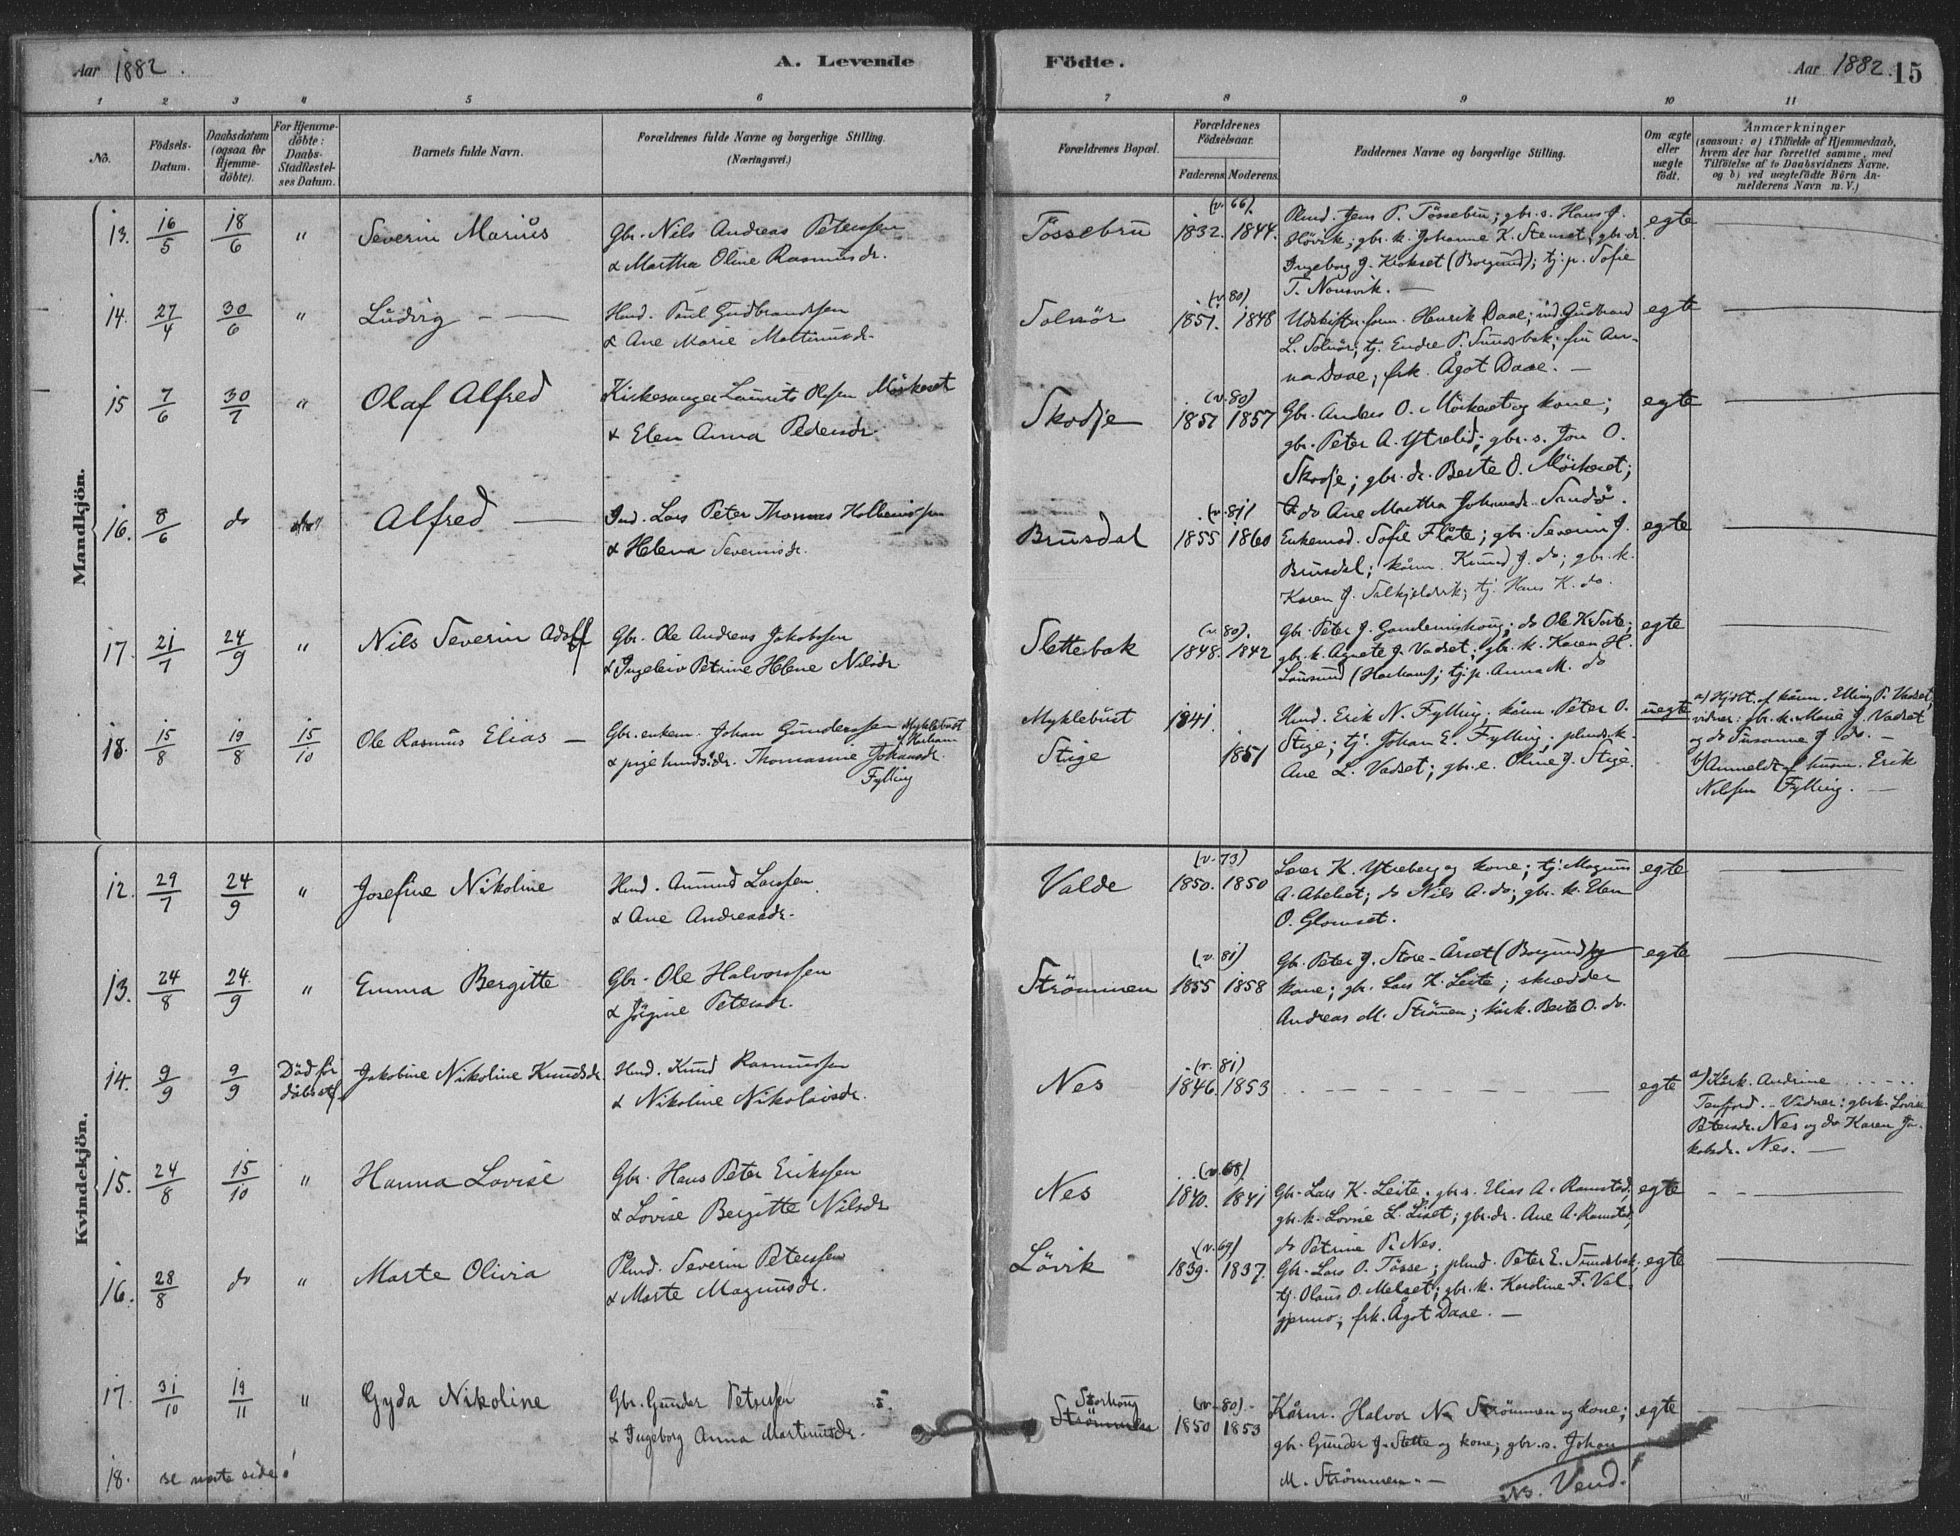 Aar 1882.
A. Levende
Födte.
Aar 1882. 15
1 2 3 4 5 6 7 8 9 10 11
No.
Födsels-Datum.
Daabsdatum (ogsaa for Hjemme-döbte).
For Hjemme-döbte: Daabs-Stadfæstel-ses Datum.
Barnets fulde Navn.
Forældrenes fulde Navne og borgerlige Stilling. (Næringsvei.)
Forældrenes Bopæl.
Forældrenes Födselsaar.
Faderens Moderens.
Faddernes Navne og borgerlige Stilling.
Om ægte eller uægte födt.
Anmærkninger
(saasom: a) i Tilfælde af Hjemmedaab, hvem der har forrettet samme, med Tilföielse af to Daabsvidners Navne. og b) ved uægtefödte Börn Anmelderens Navn m. V.)
Mandkjön.
13. 16/5 18/6 " Severin Marius
Gbr. Nils Andreas Peterssen
& Martha Oline Rasmusdr.
Tössebru (v. 66). 1832. 1844.
Plmd. Jens P. Tössebru; gbr. s. Hans J.
Hövik; gbr. k. Johanne K. Stenset; gbr. dr.
Ingeborg J. Krokset (Borgund); tj. p. Sofie
T. Nonsvik. —
egte
14. 27/4 30/6 " Ludvig —
Hmd. Paul Gudbrandssen
& Ane Marie Mattiusdr.
Solnör (v. 80) 1851. 1848
Udskiftn.form. Henrik Daae; ind. Gudbrand
L. Solnör; tj. Endre P. Sundsbak; fru An-
na Daae; frk. Ågot Daae. —
egte
15 7/6 30/7 " Olaf Alfred
Kirkesanger Laurits Olsen Mörkeset
& Elen Anna Pedersdr.
Skodje (v. 80) 1857 1857
Gbr. Anders O. Mörkeset og kone;
gbr. Peter A. Ytrelid; gbr. s. Jon O.
Skodje; gbr. dr. Berte O. Mörkeset;
do Ane Martha Johansdr.
egte
16. 8/6 do Alfred —
Ind. Lars Peter Thomas
& Helena Severinsdr.
Brusdal (v. 81) 1855 1860
Enkemad. Sofie Flåte; gbr. Severin J.
Brusdal; kårm. Knud J. do; gbr. k.
Karen J.; tj. Hans K. do.
egte
17. 21/7 24/9 " Nils Severin Adolf
Gbr. Ole Andreas Jakobssen
& Ingeleiv Petrine Helene Nilsdr
Slettebak (v. 80). 1848. 1842
Gbr. Peter J.; do Ole K.;
gbr. k. Agnete J. Vadset; gbr. k. Karen H.
Longsund (Harham); tj. p. Anna M. do
egte
18. 15/8 19/8 15/10 Ole Rasmus Elias —
Gbr. enkem. Johan Gunderssen Myklebust Harham
& pige husmds. dr. Thomasine Johansdr.
Fylling
Myklebust 1841.
Stige 1851
Hmd. Erik N. Fylling; kårm. Peter O.
Stige; tj. Johan E. Fylling; plmds. k.
Ane L. Vadset; gbr. e. Oline J. Stige.
uegte
a) Hjdbt. af kårm. Elling P. Vadset,
vidner: gbr. k. Marie J. Vadset
og do Susanne J. do. —
b) Anmeldt af husm. Erik
Nilssen Fylling. —
Kvindekjön.
12. 29/7 24/9 " Josefine Nikoline
Hmd. Amund Larssen
& Ane Andreasdr.
Valde (v. 73) 1850. 1850
Lærer K. Ytreberg og kone; tj. Magnus
A. Abelset; do Nils A. do; gbr. k. Elen
O. Glomset.
egte
13. 24/8 24/9 " Emma Bergitte
Gbr. Ole Halvorssen
& Jörgine Petersdr.
Strömmen (v. 81) 1855 1858
Gbr. Peter J. Store-Årset (Borgund) og
kone; gbr. Lars K. Leite; skrædder
Andreas M. Strömen; kårk. Berte O. do.
egte
14. 9/9 9/9 Död för dåbsstadf. Jakobine Nikoline Knudsdr.
Hmd. Knud Rasmussen
& Nikoline Nikolaisdr.
Nes (v. 81) 1846. 1853
egte
a) Kårk. Andrine
Tenfjord. Vidner: gbrk. Lovise
Petersdr. Nes og do Karen Ja-
kobsdr. Nes. —
15. 24/8 15/10 " Hanna Lovise
Gbr. Hans Peter Erikssen
& Lovise Bergitte Nilsdr
Nes (v. 68) 1840. 1841
Gbr. Lars K. Leite; gbr. s. Elias A. Ramstad;
gbr. k. Lovise L. Liset; gbr. dr. Ane A. Ramstad;
do Petrine P. Nes.
egte
16. 28/8 do " Marte Olivia
Plmd. Severin Peterssen
& Marte Magnusdr.
Lövik (v. 69) 1839. 1837.
Gbr. Lars O. Tösse; plmd. Peter E. Sundsbak;
tj. Olaus O. Melset; gbr. k. Karoline F. Val-
germo; frk. Ågot Daae. —
egte
17. 31/10 19/11 " Gyda Nikoline
Gbr. Gunder Peterssen
& Ingeborg Anna Martinusdr.
Storhaug
Strömmen (v. 80) 1850 1853
Kårm. Halvor N. Strömmen og kone;
gbr. Gunder J. Slette og kone; gbr. s. Johan
M. Strömmen. —
egte
18. se næste side!
NB. Vend!